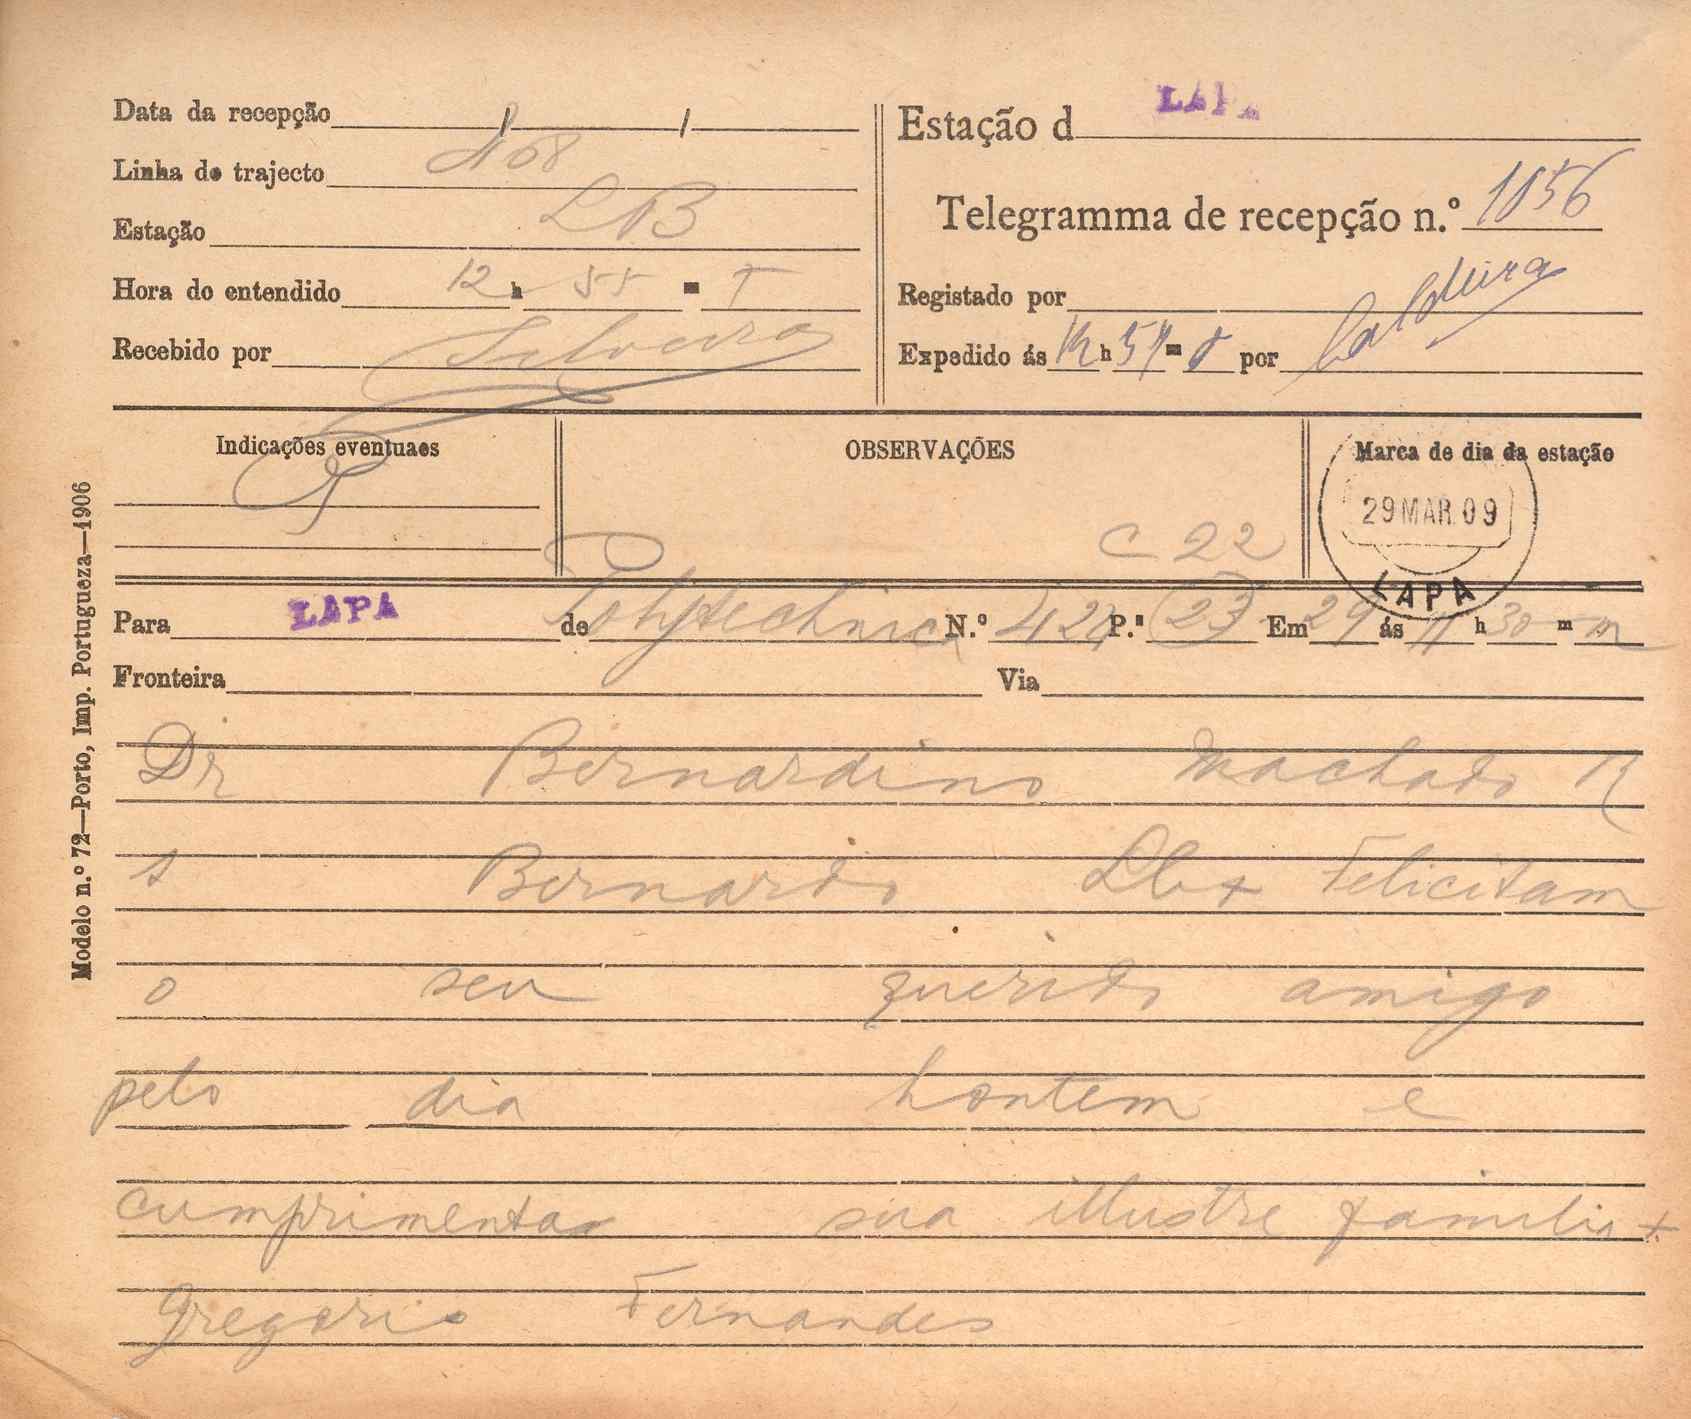 Data da recepção
Linha de trajecto 168
Estação LB
Hora do entendido 12 h 55 m T
Recebido por Silveira
Estação d LAPA
Telegramma de recepção n.º 1056
Registado por
Expedido ás 12 h 57 m por Caldeira
Indicações eventuaes
OBSERVAÇÕES
C 22
Marca de dia da estação
29 MAR. 09
LAPA
Para LAPA de Polytechnica N.º 428 P.ª 23 Em 29 ás 11 h 30 m m
Fronteira Via
Dr Bernardino Machado R
s Bernardo Lbx Felicitam
o seu querido amigo
pelo dia hontem e
cumprimentar sua illustre familia +
Gregorio Fernandes
Modelo n.º 72—Porto, Imp. Portugueza—1906